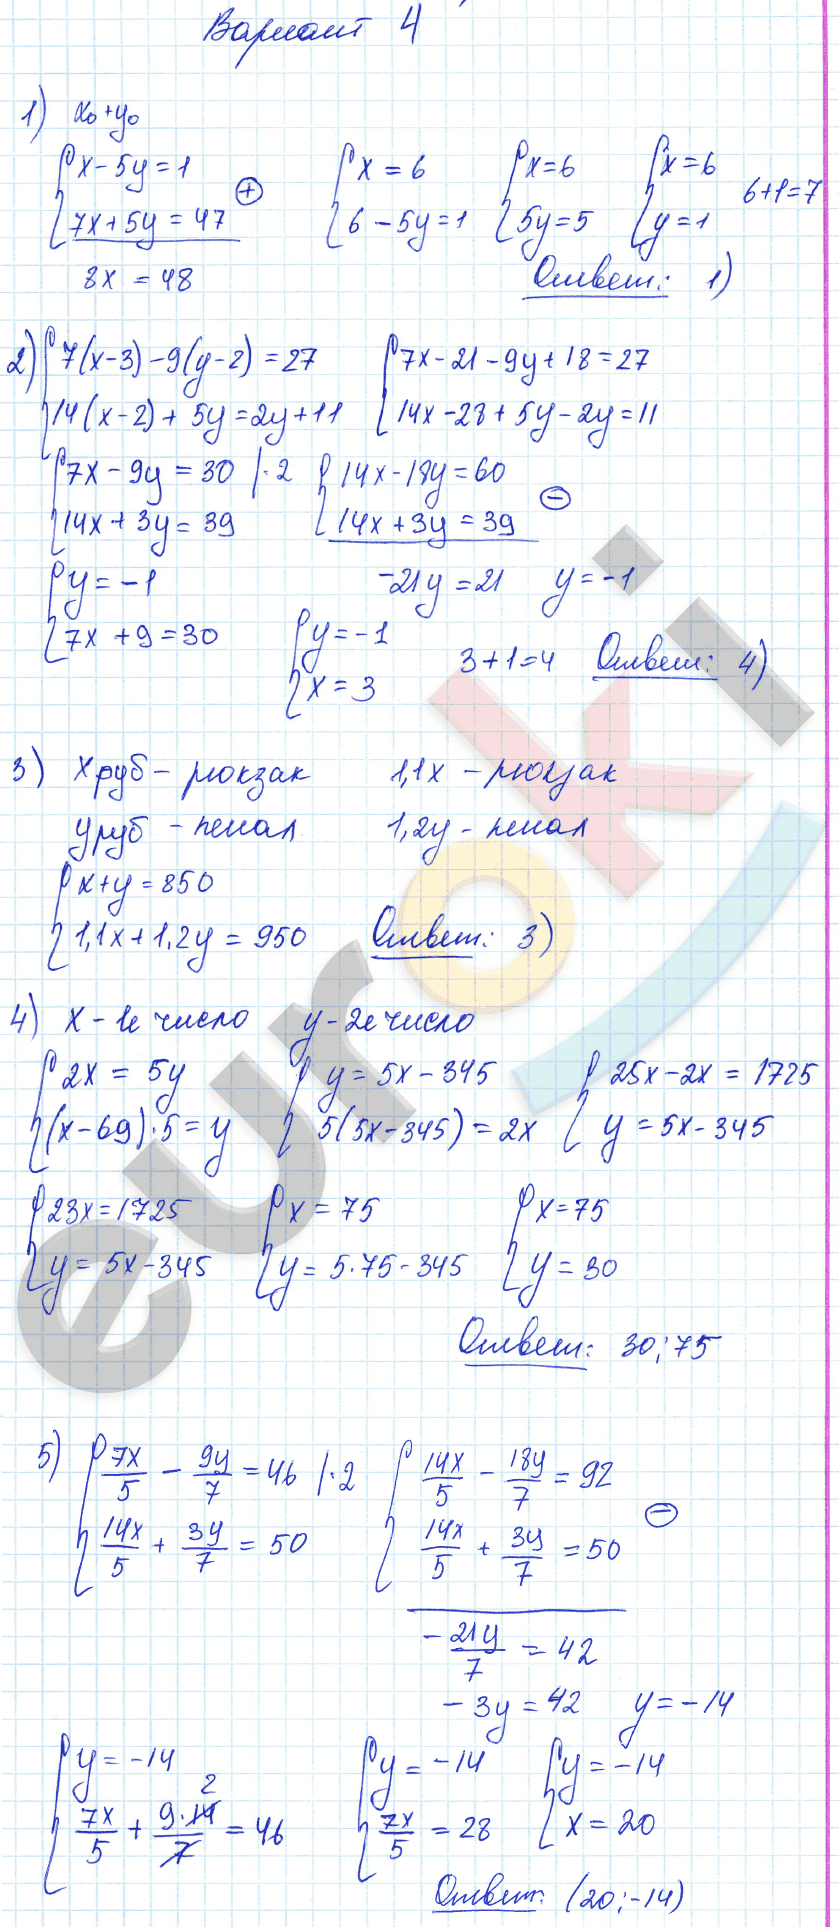 Вариант 4
1) x₀+y₀
{ x-5y=1
{ 7x+5y=47 ⊕
8x = 48
{ x = 6
{ 6-5y=1
{ x=6
{ 5y=5
{ x=6
{ y=1
6+1=7
Ответ: 1)
2) { 7(x-3)-9(y-2)=27
{ 14(x-2)+5y=2y+11
{ 7x-21-9y+18=27
{ 14x-28+5y-2y=11
{ 7x-9y=30 |·2
{ 14x+3y=39
{ 14x-18y=60
{ 14x+3y=39 ⊖
-21y=21 y=-1
{ y=-1
{ 7x+9=30
{ y=-1
{ x=3
3+1=4 Ответ: 4)
3) x руб - рюкзак 1,1x - рюкзак
y руб - пенал 1,2y - пенал
{ x+y=850
{ 1,1x+1,2y=950 Ответ: 3)
4) x - 1е число y - 2е число
{ 2x = 5y
{ (x-69)·5=y
{ y=5x-345
{ 5(5x-345)=2x
{ 25x-2x=1725
{ y=5x-345
{ 23x=1725
{ y=5x-345
{ x=75
{ y=5·75-345
{ x=75
{ y=30
Ответ: 30; 75
5) { 7x/5 - 9y/7 = 46 |·2
{ 14x/5 + 3y/7 = 50
{ 14x/5 - 18y/7 = 92
{ 14x/5 + 3y/7 = 50 ⊖
-21y/7 = 42
-3y=42 y=-14
{ y=-14
{ 7x/5 + 9·14/7 = 46
2
{ y=-14
{ 7x/5 = 28
{ y=-14
{ x=20
Ответ: (20;-14)
euroki